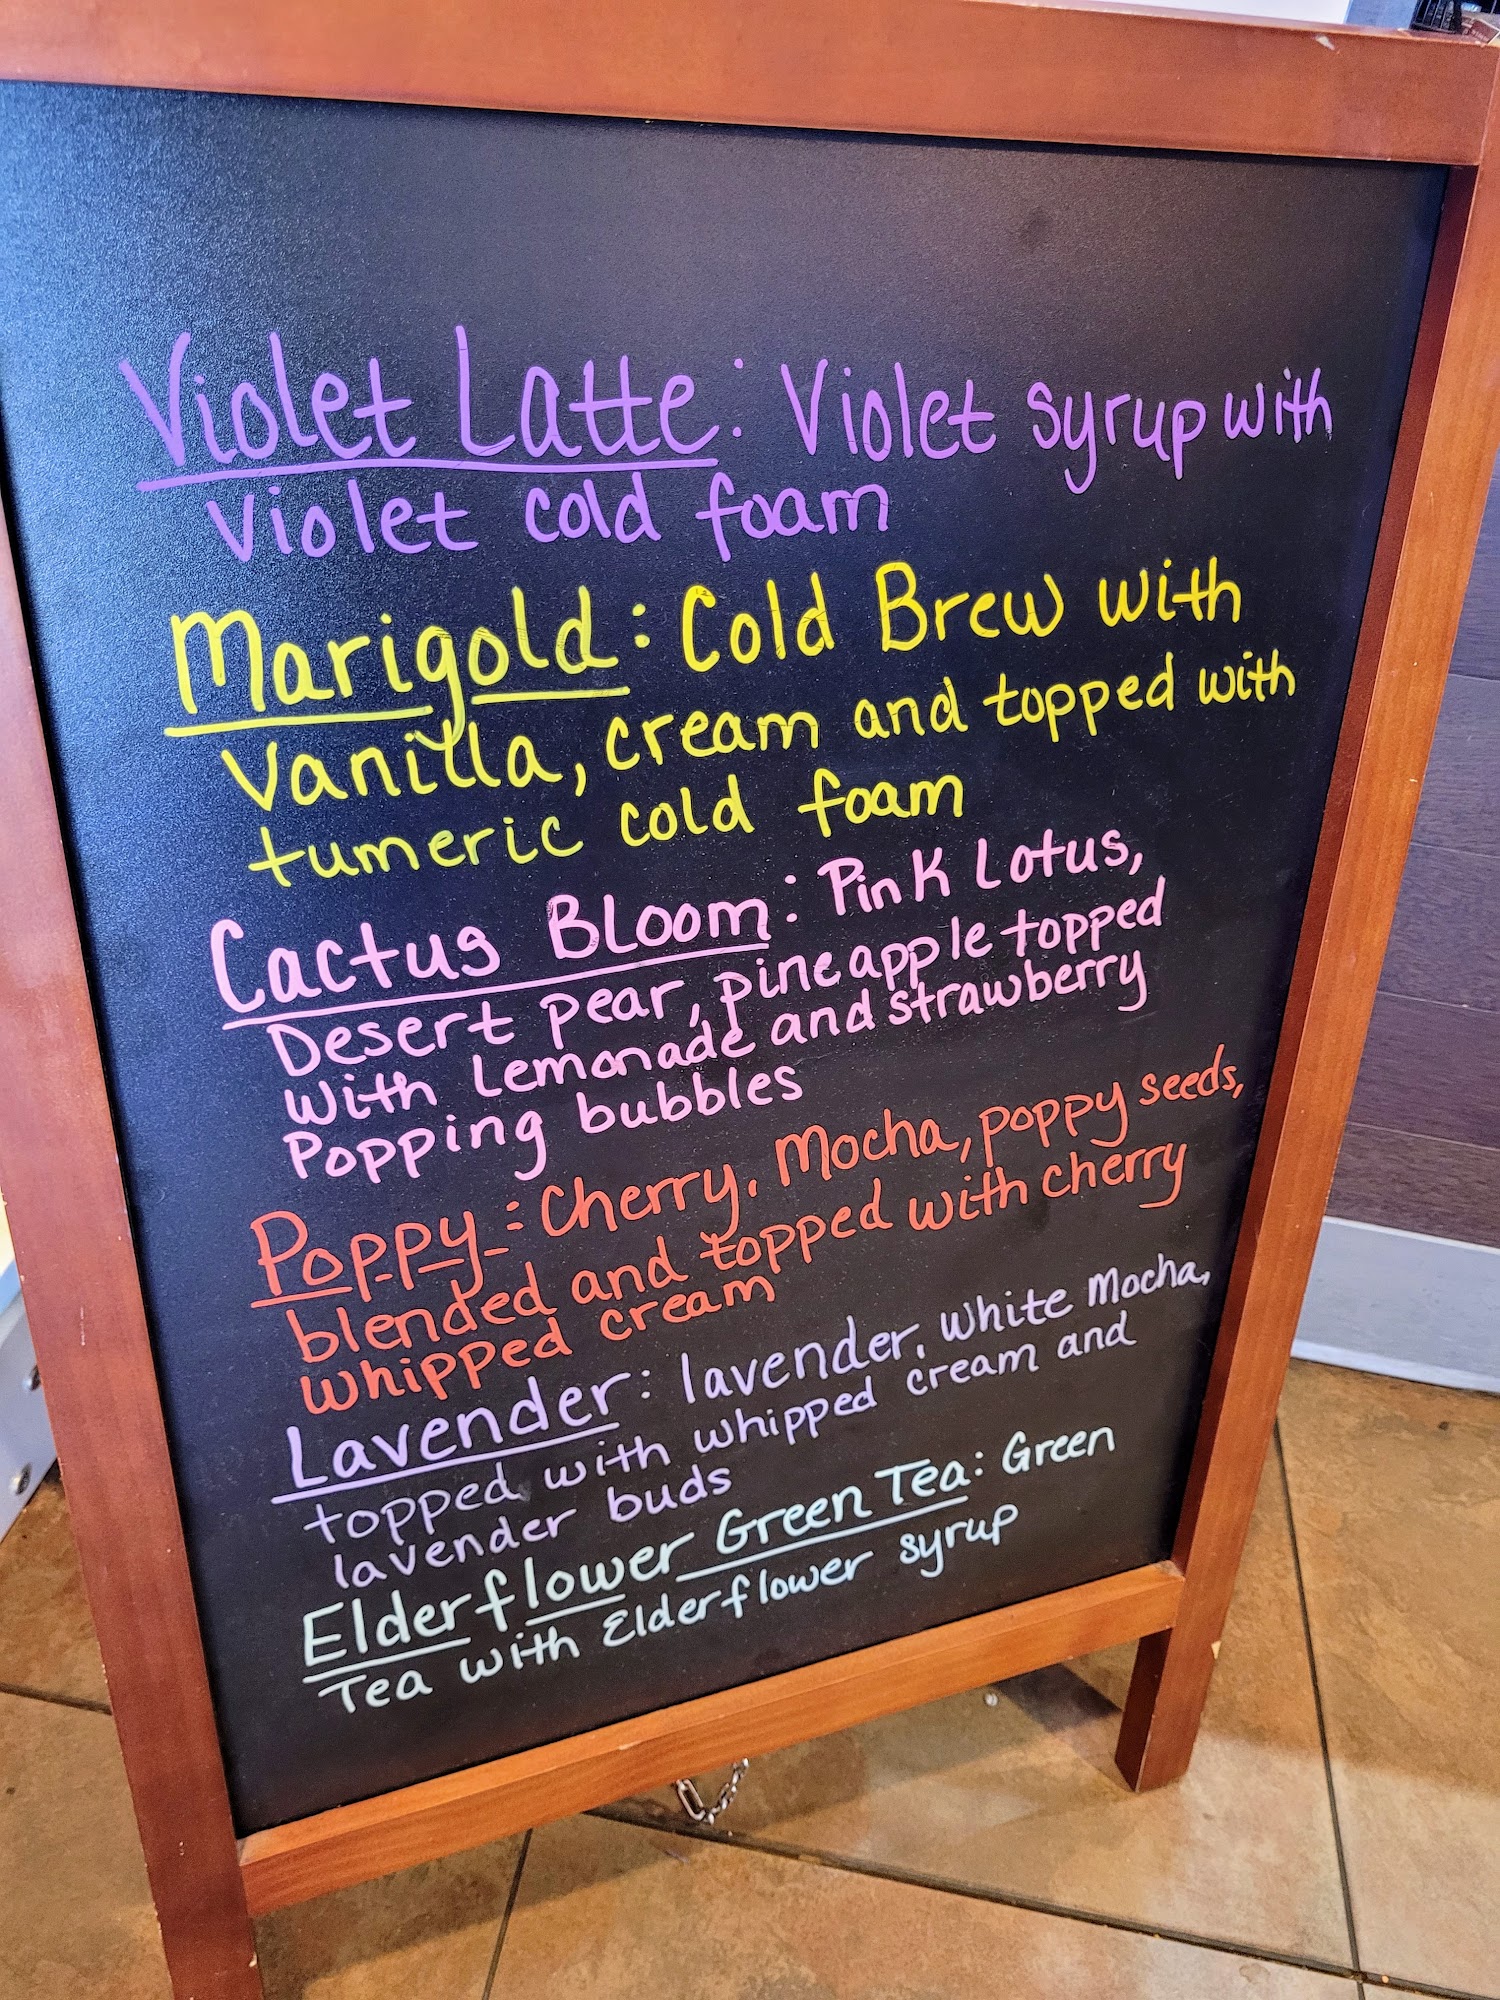 Violet Latte: Violet syrup with
Violet cold foam
Marigold: Cold Brew with
Vanilla, cream and topped with
tumeric cold foam
Cactus Bloom: Pink Lotus,
Desert pear, pineapple topped
with Lemonade and strawberry
Popping bubbles
Poppy: Cherry, Mocha, poppy seeds,
blended and topped with cherry
whipped cream
Lavender: lavender, white Mocha,
topped with whipped cream and
lavender buds
Elderflower Green Tea: Green
Tea with Elderflower syrup